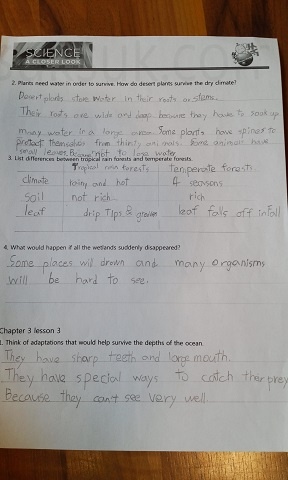 SCIENCE
A CLOSER LOOK
2. Plants need water in order to survive. How do desert plants survive the dry climate?
Desert plants store water in their roots or stems.
Their roots are wide and deep because they have to soak up
many water in a large area. Some plants have spines to
protect themselves from thirsty animals. Some animals have
small leaves not to lose water
3. List differences between tropical rain forests and temperate forests.
Tropical rain forests Temperate forests
climate rainy and hot 4 seasons
soil not rich rich
leaf drip Tips & grooves leaf falls off in fall
4. What would happen if all the wetlands suddenly disappeared?
Some places will drown and many organisms
will be hard to see.
Chapter 3 lesson 3
1. Think of adaptations that would help survive the depths of the ocean.
They have sharp teeth and large mouth.
They have special ways to catch ther prey
Because they can't see very well.